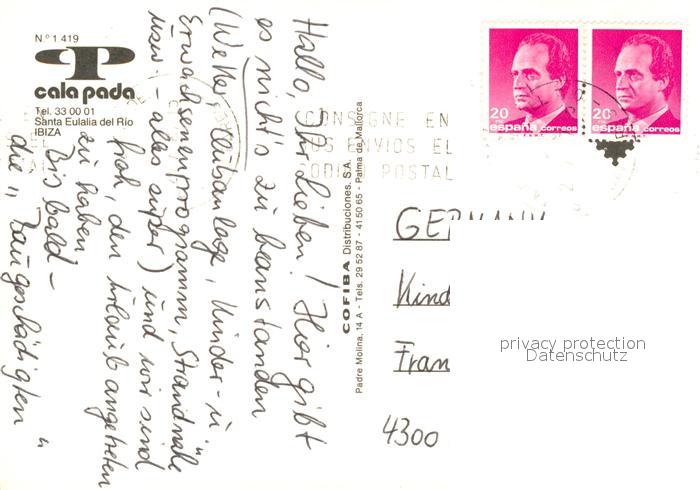 Nº 1 419
cala pada
Tel. 33 00 01
Santa Eulalia del Río
IBIZA
Hallo, Ihr Lieben! Hier gibt
es nichts zu beanstanden
(Wetter, Clubanlage, Kinder- u.
Erwachsenenprogramm, Strandnähe
usw. - alles super) und wir sind
froh, den Urlaub angetreten
zu haben
Bis bald -
die "
COFIBA Distribuciones, S.A.
Padre Molina, 14 A - Tels. 29 52 87 - 41 50 65 - Palma de Mallorca
CONSIGNE EN
ENVIOS EL
POSTAL
20
españa correos
20
españa correos
GERMANY
Kind
Fran
4300
privacy protection
Datenschutz